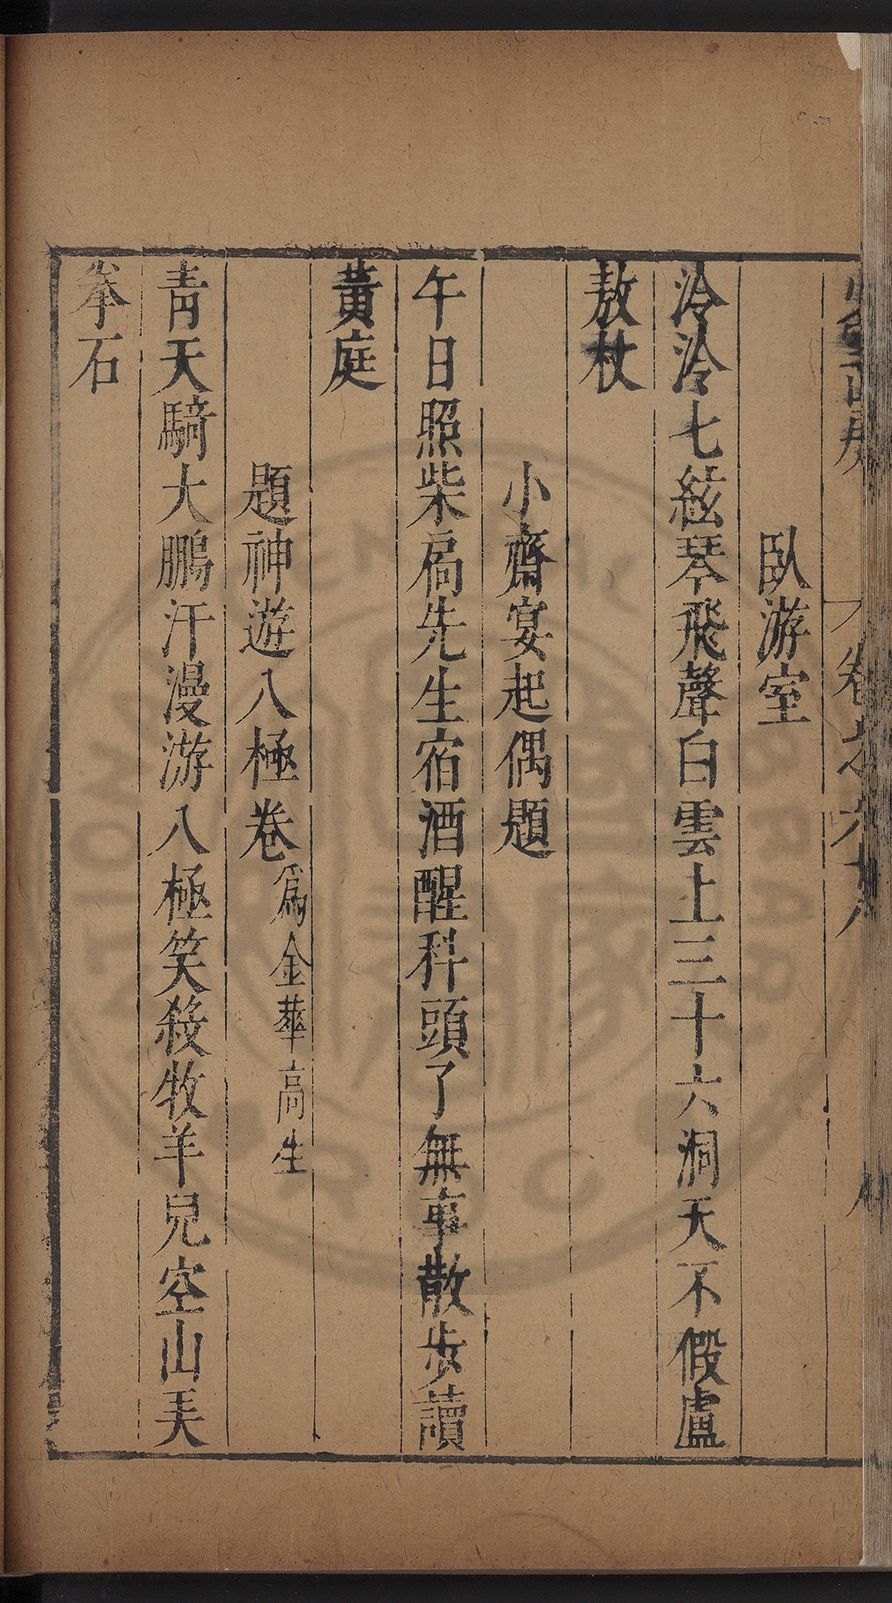 臥游室
泠泠七絃琴飛聲白雲上三十六洞天不假盧
敖杖
小齋宴起偶題
午日照柴扄先生宿酒醒科頭了無事散步讀
黃庭
題神遊八極卷爲金華高生
靑天騎大鵬汗漫游八極笑殺牧羊兒空山美
拳石